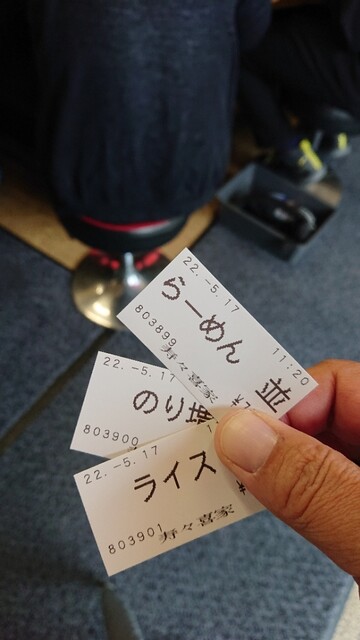 22.-5.17
らーめん 並
803899
寿々喜家
11:20
22.-5.17
のり増
803900
22.-5.17
ライス
803901
寿々喜家